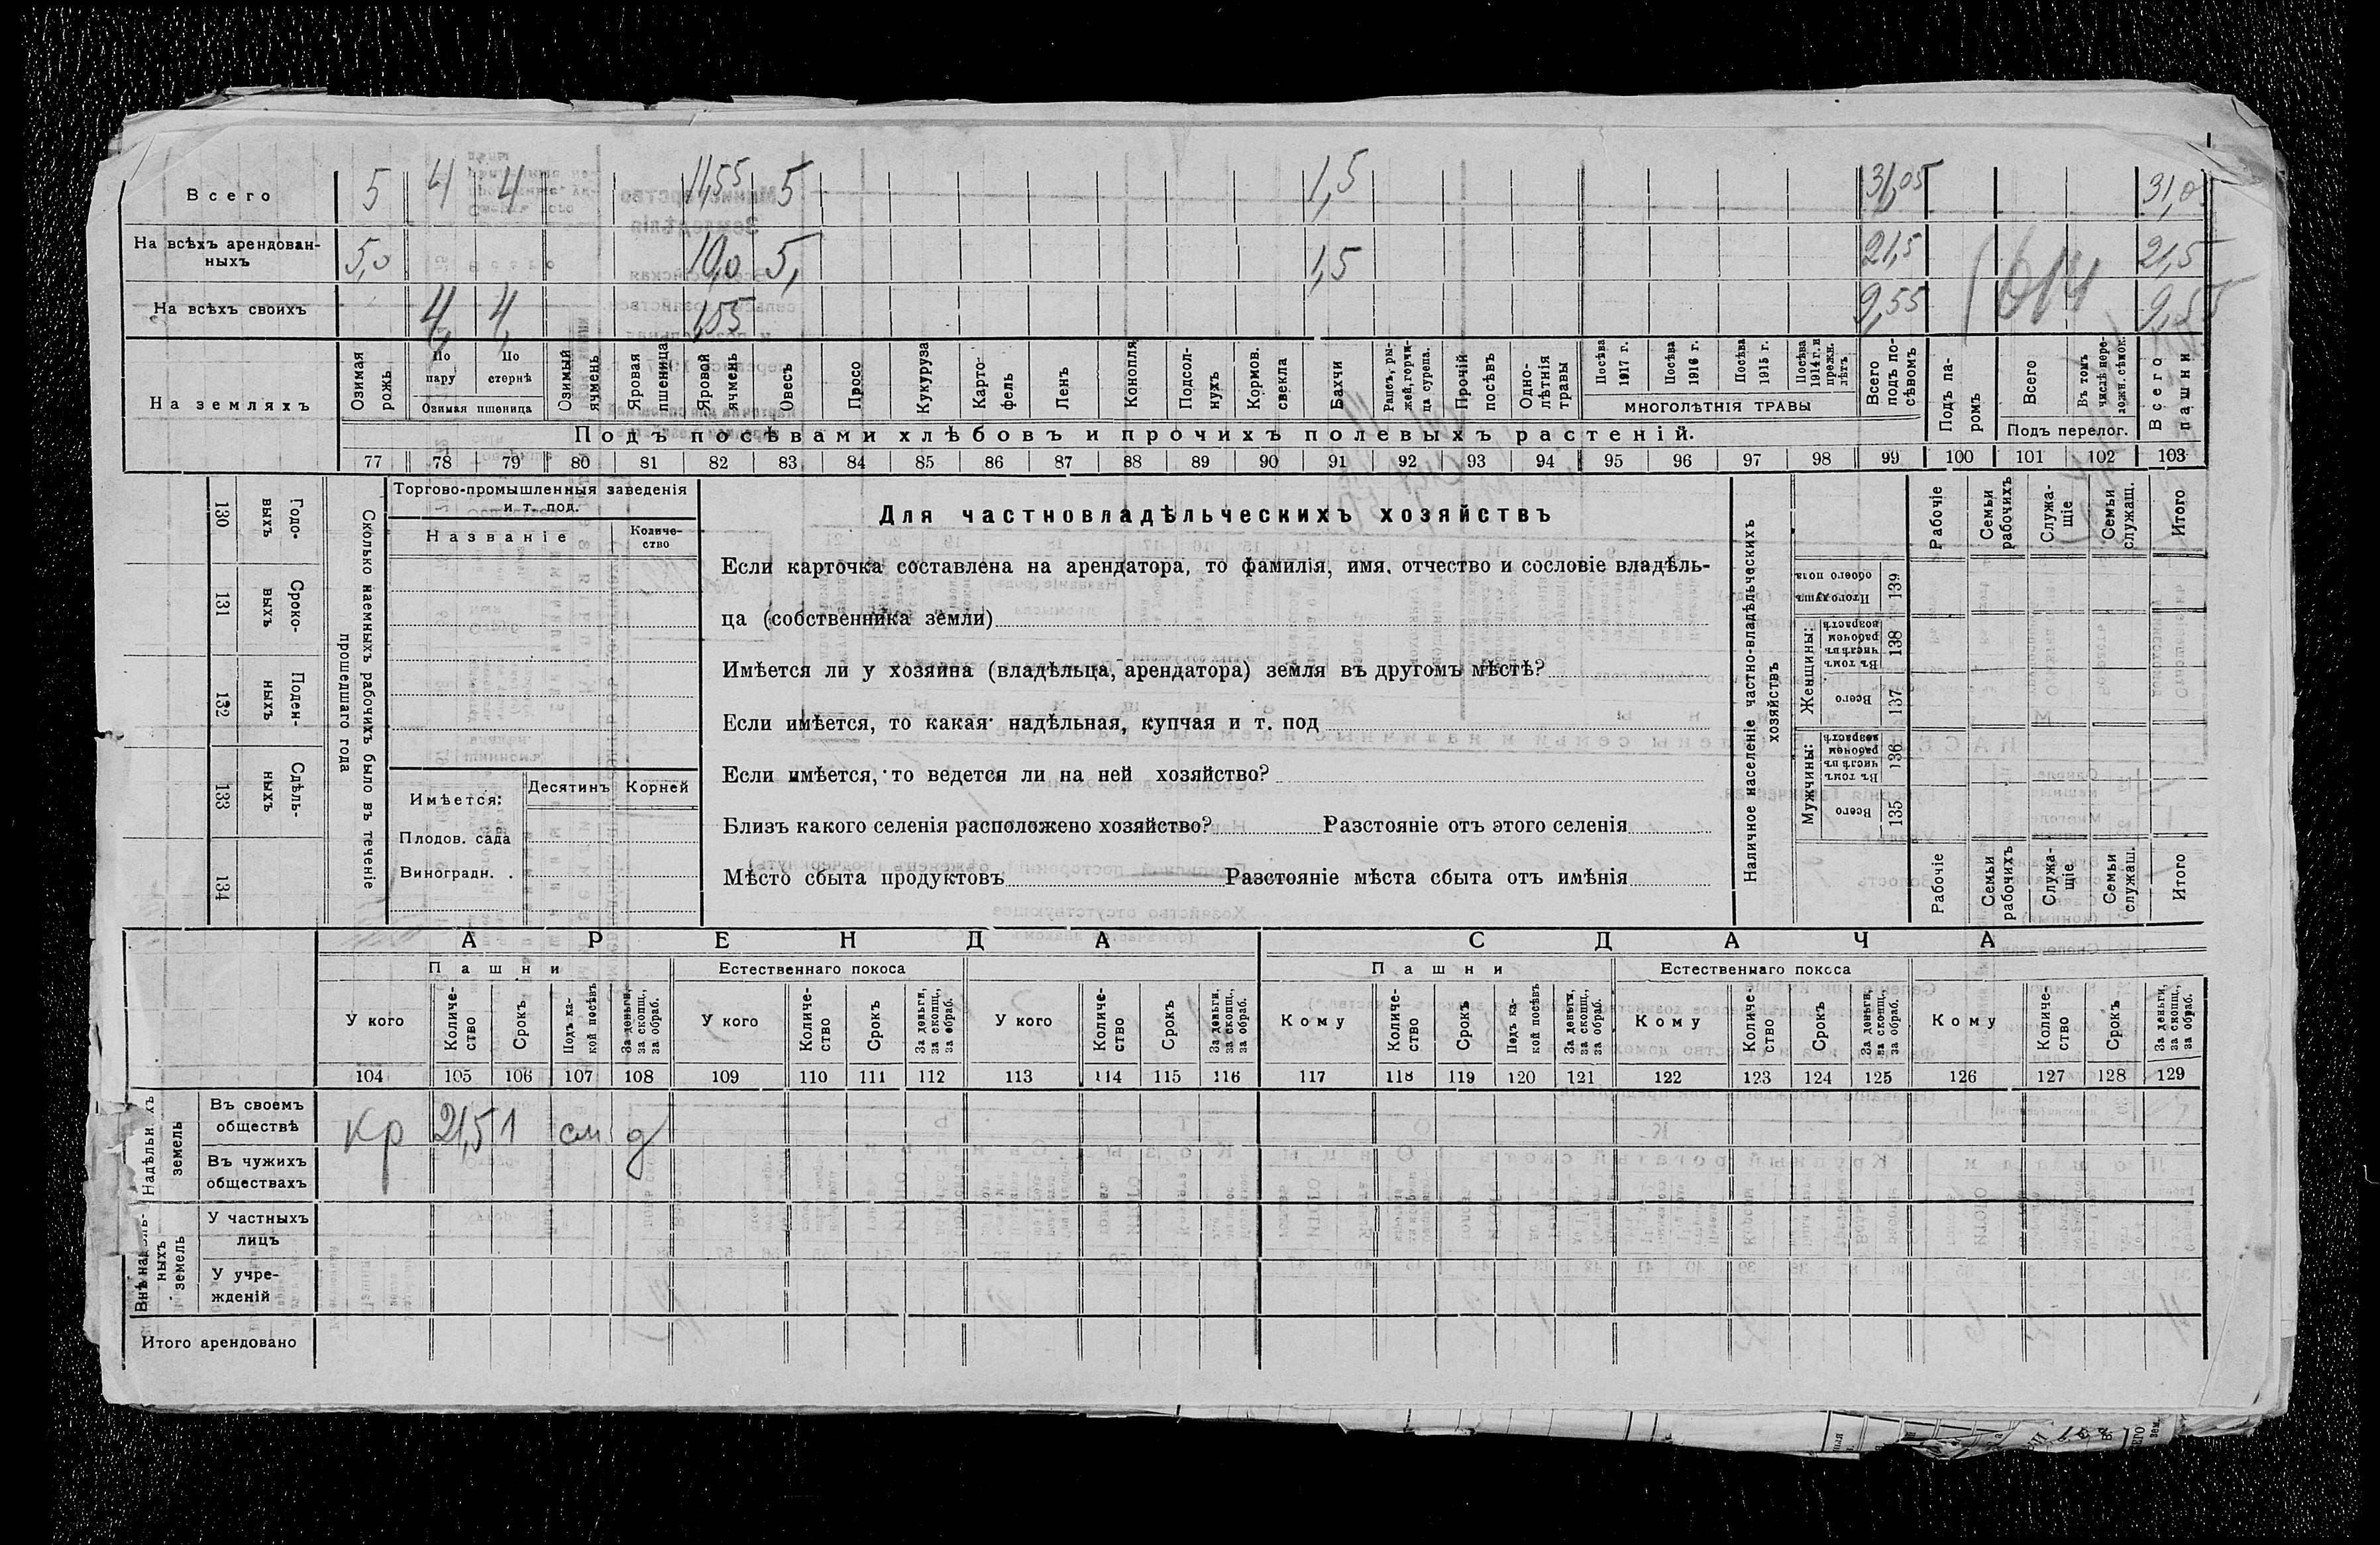 Всего 5 4 4 11,55 5 1,5 31,05 31,0
На всѣхъ арендован-
ныхъ 5,0 10,0 5, 1,5 21,5 21,5
На всѣхъ своихъ 4, 4, 1,55 9,55 9,55
На земляхъ
Озимая рожь
По пару
По стернѣ
Озимая пшеница
Озимый ячмень
Яровая пшеница
Яровой ячмень
Овесъ
Просо
Кукуруза
Карто-
фель
Ленъ
Конопля
Подсол-
нухъ
Кормов. свекла
Бахчи
Рапсъ, ры-
жей, горчи-
ца сурепа.
Прочій посѣвъ
Одно-
лѣтнія травы
Посѣва 1917 г.
Посѣва 1916 г.
Посѣва 1915 г.
Посѣва 1914 г. и прежн. лѣтъ
МНОГОЛѢТНІЯ ТРАВЫ
Всего подъ по-
сѣвомъ
Подъ па-
ромъ
Всего
Въ томъ числѣ пере-
ложн. сѣнок.
Подъ перелог.
Всего пашни
Подъ посѣвами хлѣбовъ и прочихъ полевыхъ растеній.
77 78 79 80 81 82 83 84 85 86 87 88 89 90 91 92 93 94 95 96 97 98 99 100 101 102 103
Сколько наемныхъ рабочихъ было въ теченіе
прошедшаго года
Годо-
выхъ
130
Сроко-
выхъ
131
Поден-
ныхъ
132
Сдѣль-
ныхъ
133
134
Торгово-промышленныя заведенія
и т. под.
Названіе
Количе-
ство
Имѣется:
Десятинъ Корней
Плодов. сада
Виноградн.
Для частновладѣльческихъ хозяйствъ
Если карточка составлена на арендатора, то фамилія, имя, отчество и сословіе владѣль-
ца (собственника земли)
Имѣется ли у хозяина (владѣльца, арендатора) земля въ другомъ мѣстѣ?
Если имѣется, то какая надѣльная, купчая и т. под
Если имѣется, то ведется ли на ней хозяйство?
Близъ какого селенія расположено хозяйство? Разстояніе отъ этого селенія
Мѣсто сбыта продуктовъ Разстояніе мѣста сбыта отъ имѣнія
Наличное населеніе частно-владѣльческихъ
хозяйствъ
Рабочіе
Семьи рабочихъ
Служа-
щіе
Семьи служащ.
Итого
Итого душъ обоего пола 139
Женщины:
Въ томъ числѣ въ рабочем возрастѣ 138
Всего 137
Мужчины:
Въ томъ числѣ въ рабочем возрастѣ 136
Всего 135
Рабочіе
Семьи рабочихъ
Служа-
щіе
Семьи служащ.
Итого
АРЕНДА СДАЧА
Пашни Естественнаго покоса Пашни Естественнаго покоса
У кого
Количе-
ство
Срокъ
Подъ ка-
кой посѣвъ
За деньги, за скопщ., за обраб.
У кого
Количе-
ство
Срокъ
За деньги, за скопщ., за обраб.
У кого
Количе-
ство
Срокъ
За деньги, за скопщ., за обраб.
Кому
Количе-
ство
Срокъ
Подъ ка-
кой посѣвъ
За деньги, за скопщ., за обраб.
Кому
Количе-
ство
Срокъ
За деньги, за скопщ., за обраб.
Кому
Количе-
ство
Срокъ
За деньги, за скопщ., за обраб.
104 105 106 107 108 109 110 111 112 113 114 115 116 117 118 119 120 121 122 123 124 125 126 127 128 129
земель
Въ своемъ
обществѣ кр 21,5 1 см д
Въ чужихъ
обществахъ
ныхъ земель
У частныхъ
лицъ
У учре-
жденій
Итого арендовано